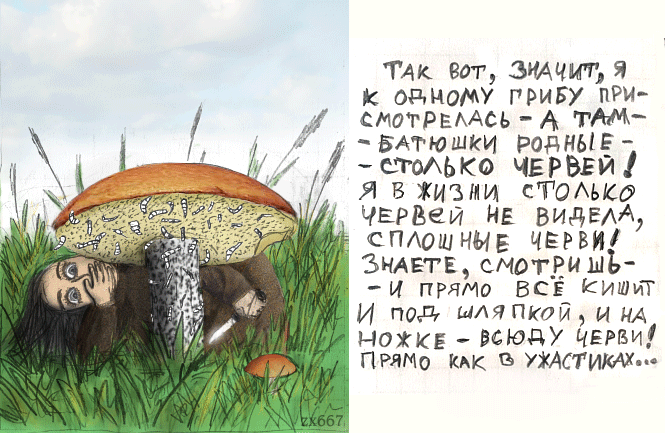 ТАК ВОТ, ЗНАЧИТ, Я
К ОДНОМУ ГРИБУ ПРИ-
СМОТРЕЛАСЬ - А ТАМ-
- БАТЮШКИ РОДНЫЕ -
- СТОЛЬКО ЧЕРВЕЙ!
Я В ЖИЗНИ СТОЛЬКО
ЧЕРВЕЙ НЕ ВИДЕЛА,
СПЛОШНЫЕ ЧЕРВИ!
ЗНАЕТЕ, СМОТРИШЬ-
- И ПРЯМО ВСЁ КИШИТ
И ПОД ШЛЯПКОЙ, И НА
НОЖКЕ - ВСЮДУ ЧЕРВИ!
ПРЯМО КАК В УЖАСТИКАХ...
zx667